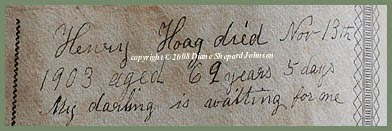 Henry Hoag died Nov 13th
copyright © 2008 Diane Shepard Johnson
1903 aged 62 years 5 days
My darling is waiting for me